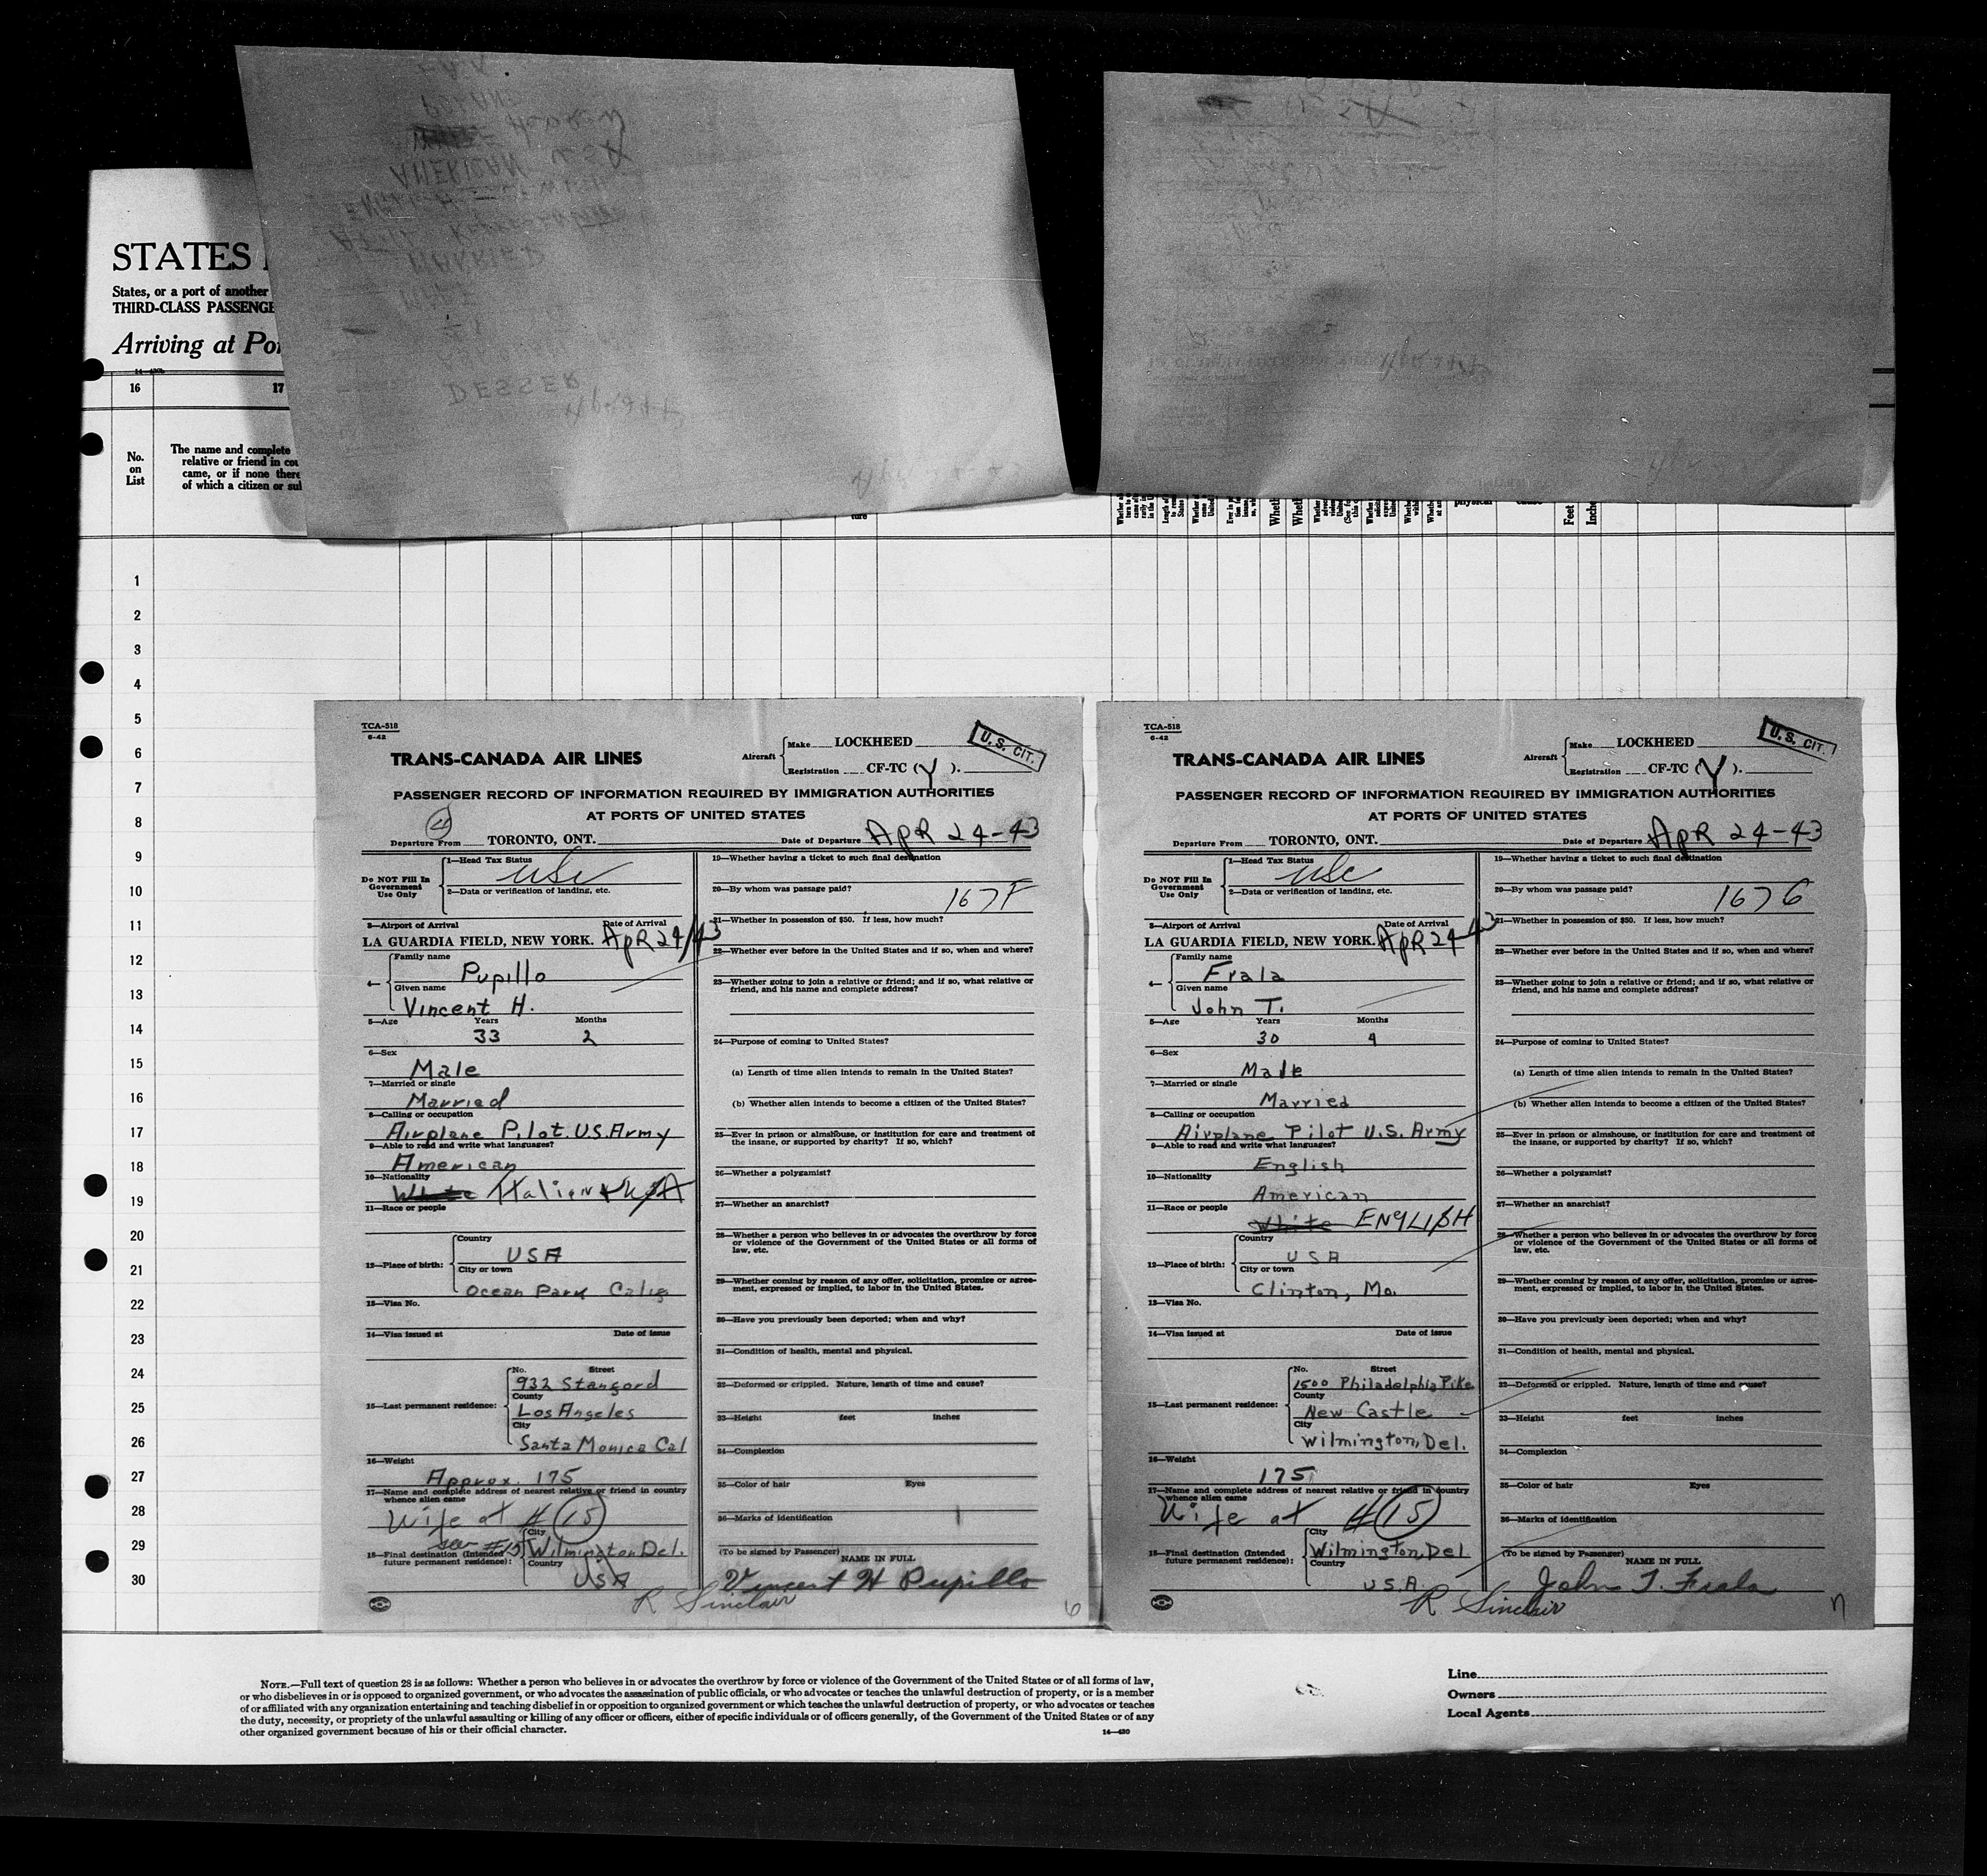 STATES
States, or a port of another
THIRD-CLASS PASSENGE
Arriving at Por
16 17
No.
on
List
The name and complete
relative or friend in cou
came, or if none there
of which a citizen or sul
ture
physical
cause
Feet
Inche
1
2
3
4
5
6
7
8
9
10
11
12
13
14
15
16
17
18
19
20
21
22
23
24
25
26
27
28
29
30
TCA-518
6-42
TRANS-CANADA AIR LINES
Aircraft
Make LOCKHEED
Registration CF-TC (Y).
U.S. CIT.
PASSENGER RECORD OF INFORMATION REQUIRED BY IMMIGRATION AUTHORITIES
AT PORTS OF UNITED STATES
4
Departure From TORONTO, ONT. Date of Departure APR 24-43
Do NOT Fill In
Government
Use Only
1—Head Tax Status
usc
2—Data or verification of landing, etc.
3—Airport of Arrival Date of Arrival
LA GUARDIA FIELD, NEW YORK. APR 24/43
4—
Family name
Pupillo
Given name
Vincent H.
5—Age Years Months
33 2
6—Sex
Male
7—Married or single
Married
8—Calling or occupation
Airplane Pilot. U.S. Army
9—Able to read and write what languages?
American
10—Nationality
White Italian USA
11—Race or people
12—Place of birth:
Country
USA
City or town
Ocean Park Calif
13—Visa No.
14—Visa issued at Date of issue
15—Last permanent residence:
No. Street
932 Stanford
County
Los Angeles
City
Santa Monica Cal
16—Weight
Approx. 175
17—Name and complete address of nearest relative or friend in country
whence alien came
Wife at # 15
see #15
18—Final destination (Intended
future permanent residence):
City
Wilmington Del.
Country
USA
19—Whether having a ticket to such final destination
20—By whom was passage paid?
167F
21—Whether in possession of $50. If less, how much?
22—Whether ever before in the United States and if so, when and where?
23—Whether going to join a relative or friend; and if so, what relative or
friend, and his name and complete address?
24—Purpose of coming to United States?
(a) Length of time alien intends to remain in the United States?
(b) Whether alien intends to become a citizen of the United States?
25—Ever in prison or almshouse, or institution for care and treatment of
the insane, or supported by charity? If so, which?
26—Whether a polygamist?
27—Whether an anarchist?
28—Whether a person who believes in or advocates the overthrow by force
or violence of the Government of the United States or all forms of
law, etc.
29—Whether coming by reason of any offer, solicitation, promise or agree-
ment, expressed or implied, to labor in the United States.
30—Have you previously been deported; when and why?
31—Condition of health, mental and physical.
32—Deformed or crippled. Nature, length of time and cause?
33—Height feet inches
34—Complexion
35—Color of hair Eyes
36—Marks of identification
(To be signed by Passenger) NAME IN FULL
Vincent H Pupillo
R Sinclair
6
TCA-518
6-42
TRANS-CANADA AIR LINES
Aircraft
Make LOCKHEED
Registration CF-TC (Y).
U.S. CIT.
PASSENGER RECORD OF INFORMATION REQUIRED BY IMMIGRATION AUTHORITIES
AT PORTS OF UNITED STATES
Departure From TORONTO, ONT. Date of Departure APR 24-43
Do NOT Fill In
Government
Use Only
1—Head Tax Status
usc
2—Data or verification of landing, etc.
3—Airport of Arrival Date of Arrival
LA GUARDIA FIELD, NEW YORK. APR 24-43
4—
Family name
Frala
Given name
John T.
5—Age Years Months
30 4
6—Sex
Male
7—Married or single
Married
8—Calling or occupation
Airplane Pilot U.S. Army
9—Able to read and write what languages?
English
10—Nationality
American
11—Race or people
White ENGLISH
12—Place of birth:
Country
USA
City or town
Clinton, Mo.
13—Visa No.
14—Visa issued at Date of issue
15—Last permanent residence:
No. Street
1500 Philadelphia Pike
County
New Castle
City
Wilmington, Del.
16—Weight
175
17—Name and complete address of nearest relative or friend in country
whence alien came
Wife at #15
18—Final destination (Intended
future permanent residence):
City
Wilmington, Del
Country
U.S.A.
19—Whether having a ticket to such final destination
20—By whom was passage paid?
167G
21—Whether in possession of $50. If less, how much?
22—Whether ever before in the United States and if so, when and where?
23—Whether going to join a relative or friend; and if so, what relative or
friend, and his name and complete address?
24—Purpose of coming to United States?
(a) Length of time alien intends to remain in the United States?
(b) Whether alien intends to become a citizen of the United States?
25—Ever in prison or almshouse, or institution for care and treatment of
the insane, or supported by charity? If so, which?
26—Whether a polygamist?
27—Whether an anarchist?
28—Whether a person who believes in or advocates the overthrow by force
or violence of the Government of the United States or all forms of
law, etc.
29—Whether coming by reason of any offer, solicitation, promise or agree-
ment, expressed or implied, to labor in the United States.
30—Have you previously been deported; when and why?
31—Condition of health, mental and physical.
32—Deformed or crippled. Nature, length of time and cause?
33—Height feet inches
34—Complexion
35—Color of hair Eyes
36—Marks of identification
(To be signed by Passenger) NAME IN FULL
John T. Frala
R Sinclair
7
NOTE.—Full text of question 28 is as follows: Whether a person who believes in or advocates the overthrow by force or violence of the Government of the United States or of all forms of law,
or who disbelieves in or is opposed to organized government, or who advocates the assassination of public officials, or who advocates or teaches the unlawful destruction of property, or is a member
of or affiliated with any organization entertaining and teaching disbelief in or opposition to organized government or which teaches the unlawful destruction of property, or who advocates or teaches
the duty, necessity, or propriety of the unlawful assaulting or killing of any officer or officers, either of specific individuals or of officers generally, of the Government of the United States or of any
other organized government because of his or their official character.
14—430
Line
Owners
Local Agents